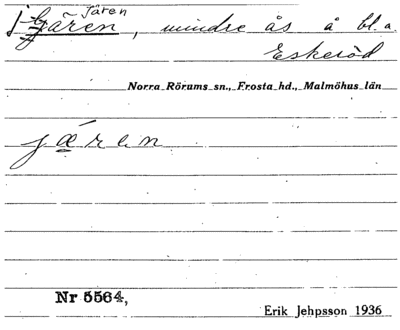 Jären
j Gären, mindre ås å bl.a.
Eskeröd
Norra Rörums sn., Frosta hd., Malmöhus län
jǽren
Nr 5564,
Erik Jehpsson 1936